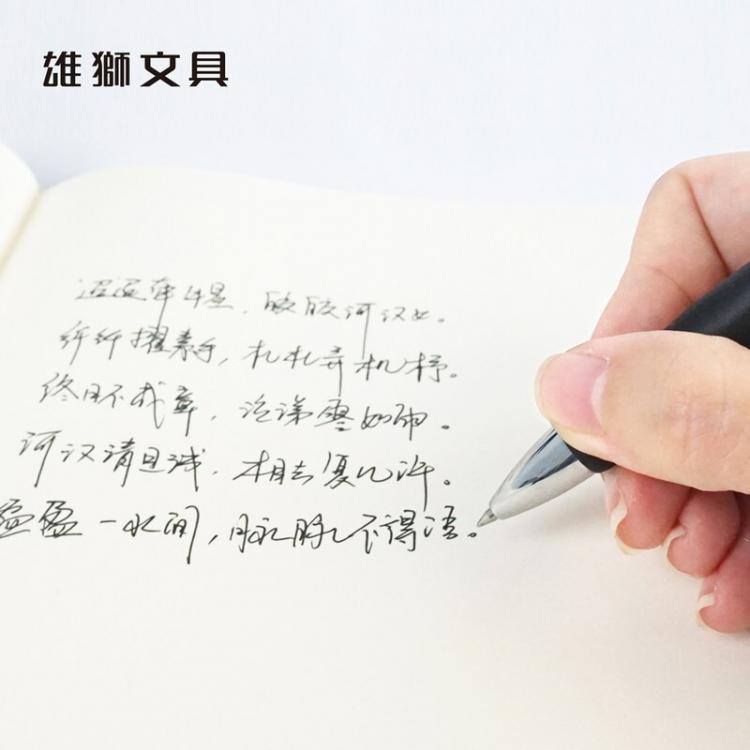 雄獅文具
迢迢牵牛星，皎皎河汉女。
纤纤擢素手，札札弄机杼。
终日不成章，泣涕零如雨。
河汉清且浅，相去复几许。
盈盈一水间，脉脉不得语。